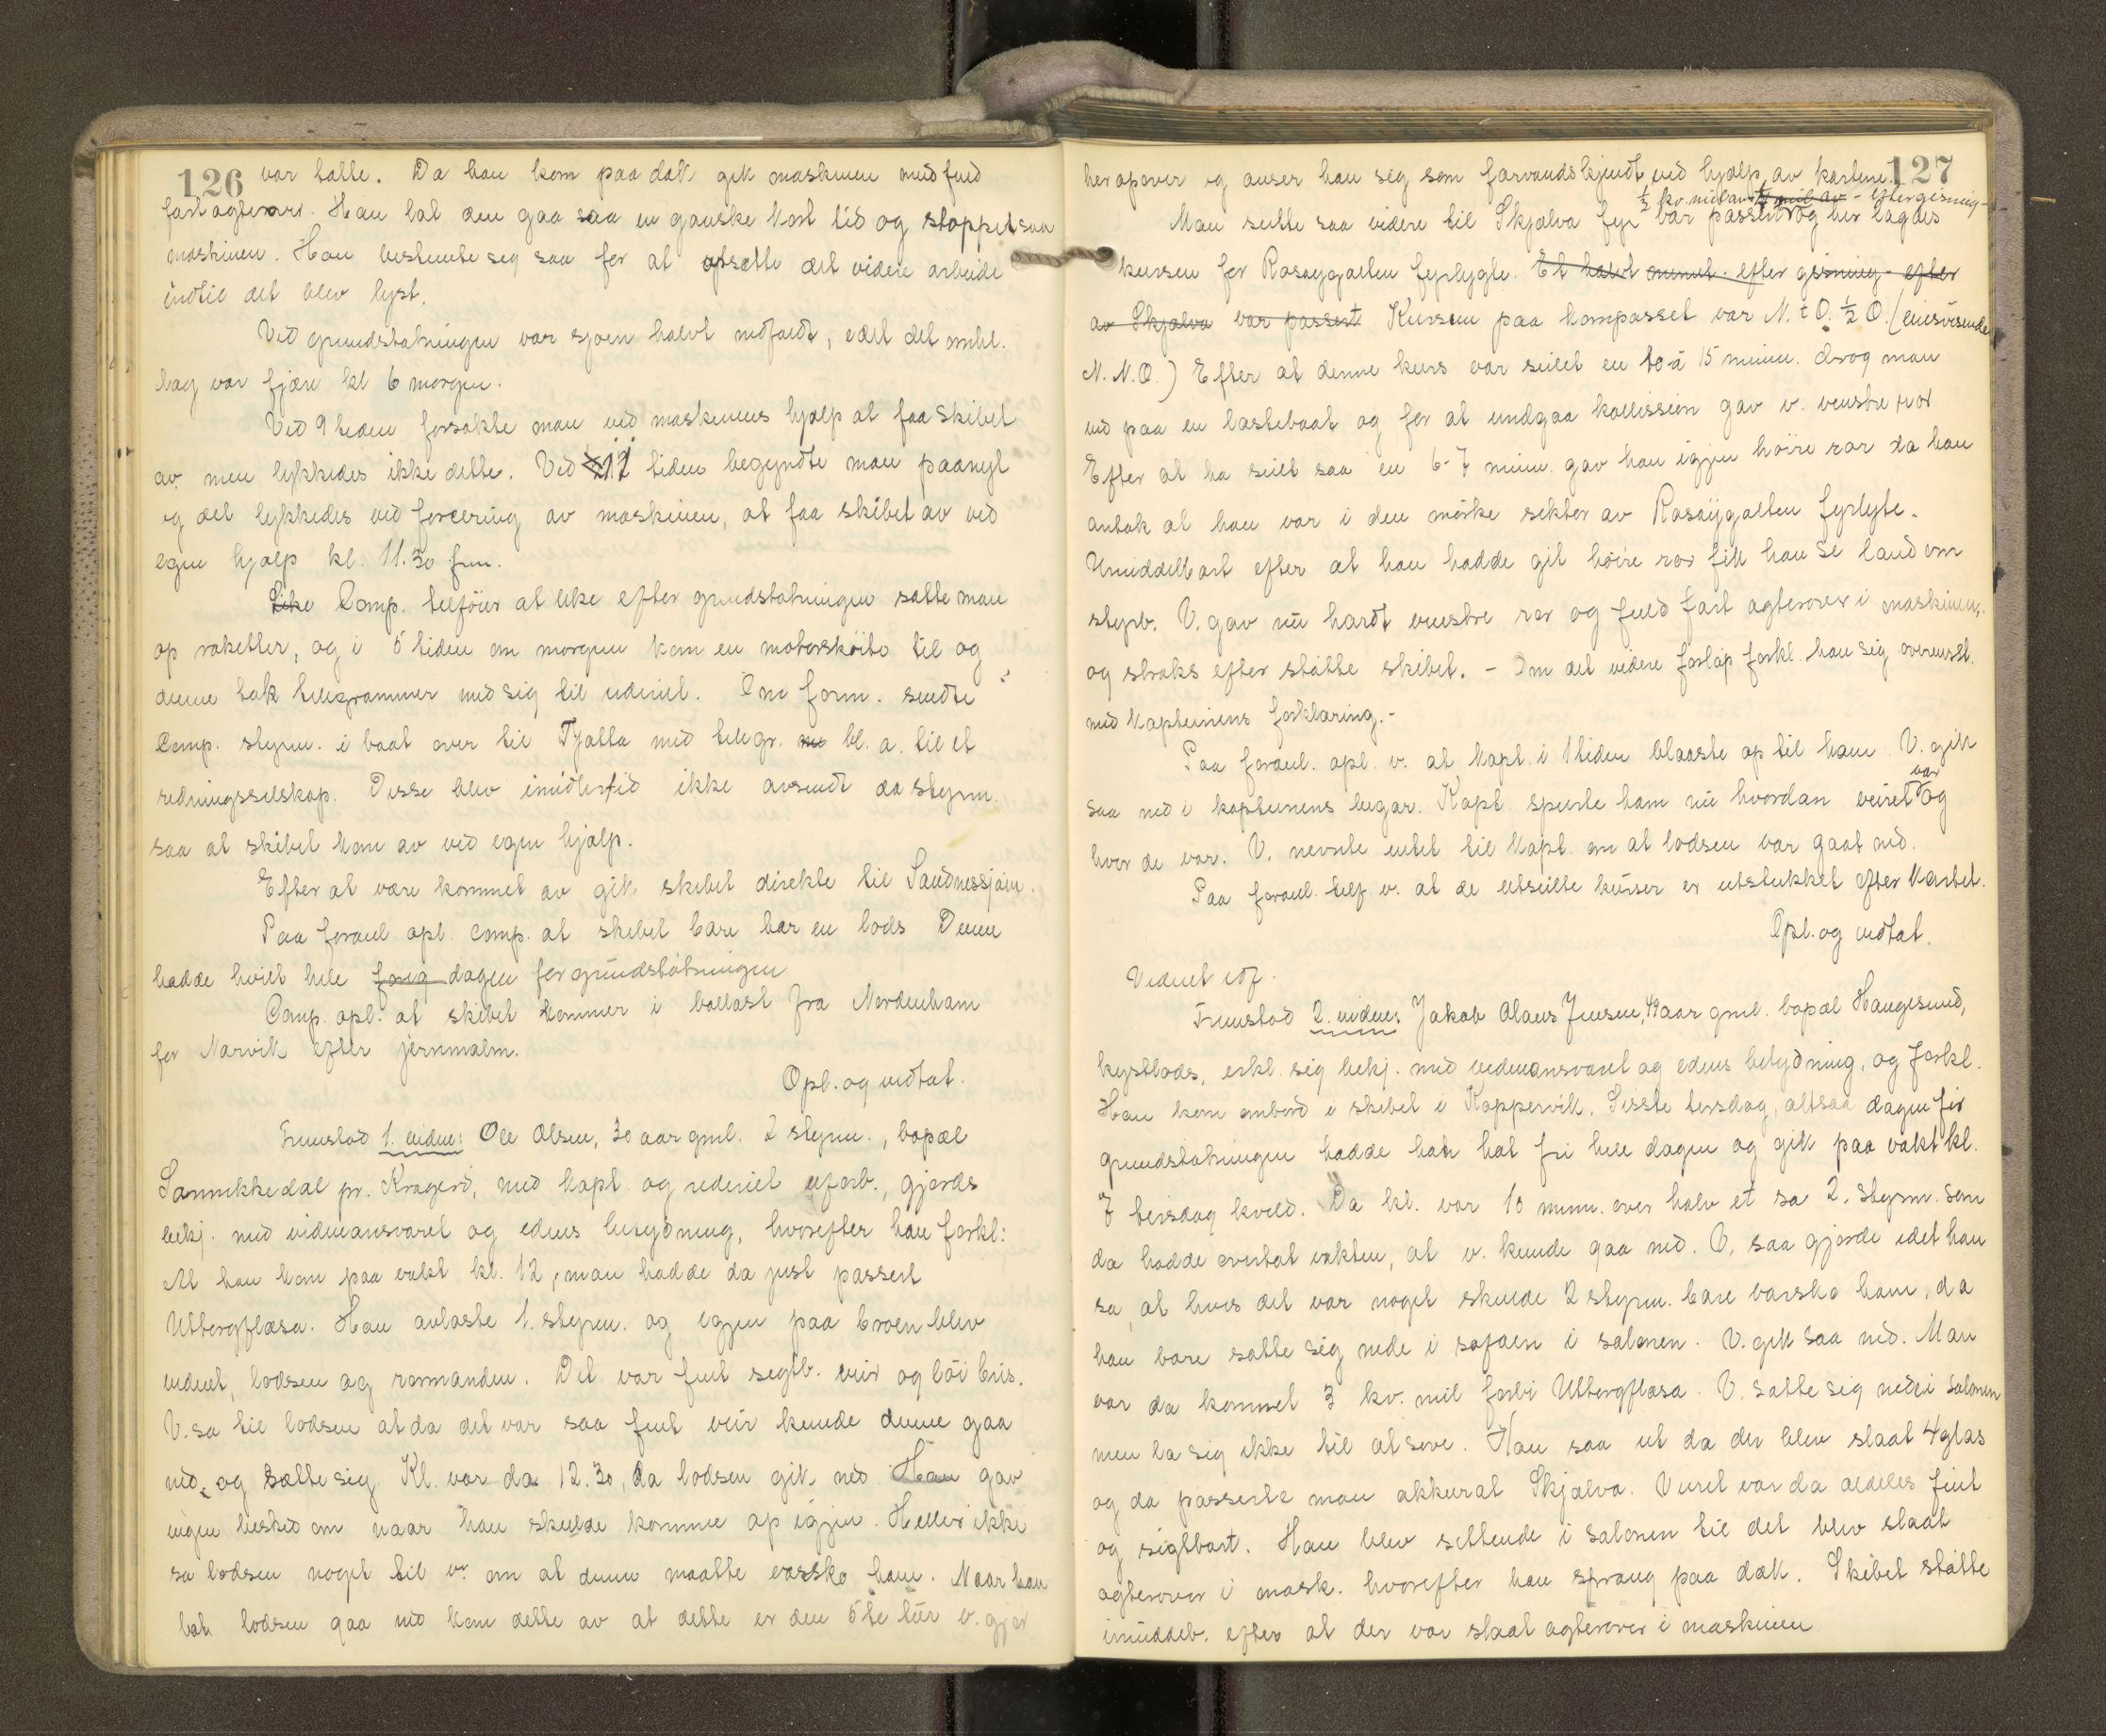 126
var tatte. Da han kom paa dæk gik maskinen med fuld
fart agterover. Han lot den gaa saa en ganske kort tid og stoppet saa
maskinen. Han bestemte seg saa for at opsætte det videre arbeide
indtil det blev lyst.
Ved grundstøtningen var sjøen halvt nedfaldt, idet det omhl.
dag var fjære kl 6 morgen.
Ved 9 tiden forsøkte man ved maskinens hjælp at faa skibet
av men lykkedes ikke dette. Ved 11 tiden begyndte man paanyt
og det lykkedes ved forcering av maskinen, at faa skibet av ved
egen hjælp kl. 11.30 fm.
Like Comp. tilføier at like efter grundstøtningen satte man
op raketter, og i 5 tiden om morgen kom en motorskøite til og
denne tok telegrammer med sig til rederiet. Om form. sendte
Comp. styrm. i baat over til Tjøtta med telegr. bl. a. til et
redningsselskap. Disse blev imidlertid ikke avsendt da styrm.
saa at skibet kom av ved egen hjælp.
Efter at være kommet av gik skibet direkte til Sandnessjøen.
Paa foranl. opl. comp. at skibet bare har en lods Denne
hadde hvilt hele forrig dagen for grundstøtningen
Comp. opl. at skibet kommer i ballast fra Nordenham
for Narvik efter jernmalm.
Opl. og vedtat.
Fremstod 1. vidne: Ole Olsen, 30 aar gml. 2 styrm., bopæl
Sannikkedal pr. Kragerø, med kapt. og rederiet uforb., gjordes
bekj. med vidneansvaret og edens betydning, hvorefter han forkl:
At han kom paa vakt kl. 12, man hadde da just passert
Utbergflæsa. Han avløste 1. styrm. og igjen paa broen blev
vidnet, lodsen og rormanden. Det var fint sigtb. veir og løi bris.
V. sa til lodsen at da det var saa fint veir kunde denne gaa
ned og sætte sig. Kl. var da 12.30, da lodsen gik ned Han gav
ingen beskjed om naar han skulde komme op igjen. Heller ikke
sa lodsen noget til v. om at denne maatte varsko ham. Naar han
lot lodsen gaa ned kom dette av at dette er den 5te tur v. gjør
127
her opover og anser han sig som farvandskjendt ved hjælp av kartene.
½ kv. mil av ½ mil av - eftergisning -
Man seilte saa videre til Skjælva fyr var passert og her lagdes
kursen for Rosøygalten fyrlygte. Et halvt minut - efter gisning - efter
av Skjælva var passert Kursen paa kompasset var N. t O. ½ O. (misvisende
N.N.O.) Efter at denne kurs var seilet en 10 à 15 minu. drog man
ind paa en lastebaat og for at undgaa kollission gav v. venstre ror
Efter at ha seilt saa en 6-7 minu. gav han igjen høire ror da han
antok at han var i den mørke sektor av Rosøygalten fyrlygte.
Umiddelbart efter at han hadde git høire ror fik han se land om
styrb. V. gav nu hardt venstre ror og fuld fart agterover i maskinen,
og straks efter støtte skibet. - Om det videre forløp forkl. han sig overenst.
med kapteinens forklaring.-
Paa foranl. opl. v. at kapt. i 1 tiden blaaste op til ham. V. gik
saa ned i kapteinens lugar. Kapt. spurte ham nu hvordan veiret var og
hvor de var. V. nevnte intet til kapt. om at lodsen var gaat ned.
Paa foranl. tilf. v. at de utseilte kurser er utstukket efter kartet.
Opl. og vedtat.
Vidnet edf.
Fremstod 2. vidne: Jakob Olaus Jensen, 49 aar gml. bopæl Haugesund,
kystlods, erkl. sig bekj. med vidneansvaret og edens betydning, og forkl.
Han kom ombord i skibet i Koppervik. Sisste tirsdag, altsaa dagen før
grundstøtningen hadde han hat fri hele dagen og gik paa vakt kl.
7 tirsdag kveld. Da kl. var 10 minu. over halv et sa 2. styrm. som
da hadde overtat vakten, at v. kunde gaa ned. V. saa gjorde idet han
sa, at hvis det var noget skulde 2 styrm. bare varsko ham, da
han bare satte sig nede i sofaen i salonen. V. gik saa ned. Man
var da kommet 3 kv. mil forbi Utbergflæsa. V. satte sig ned i salonen
men la sig ikke til at sove. Han saa ut da der blev slaat 4 glas
og da passerte man akkurat Skjælva. Veiret var da aldeles fint
og sigtbart. Han blev sittende i salonen til det blev slaat
agterover i mask. hvorefter han sprang paa dæk. Skibet støtte
imiddelb. efter at der var slaat agterover i maskinen